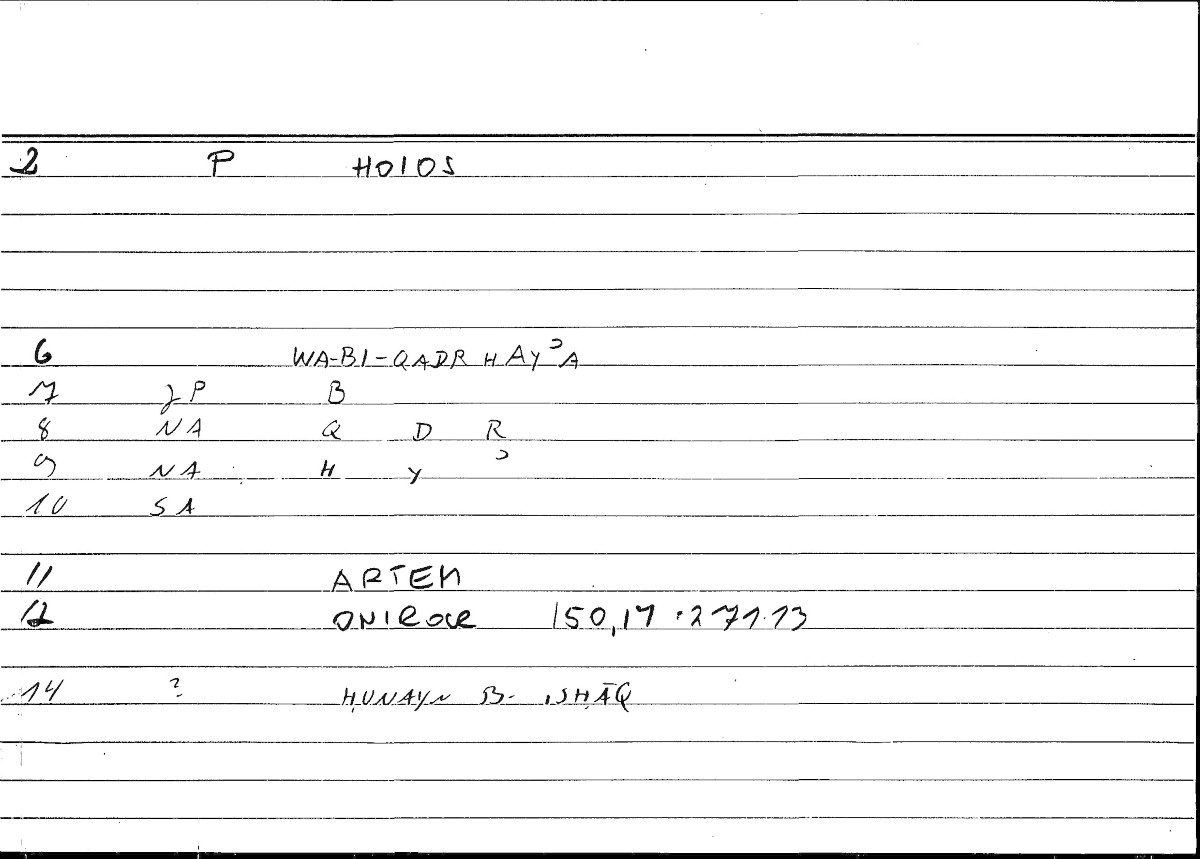 2 P HOIOS
6 WA-BI-QADR HAYʾA
7 JP B
8 NA Q D R
9 NA H Y ʾ
10 SA
11 ARTEM
12 ONIROCR 150,17 · 271.13
14 ? ḤUNAYN B. ISḤĀQ